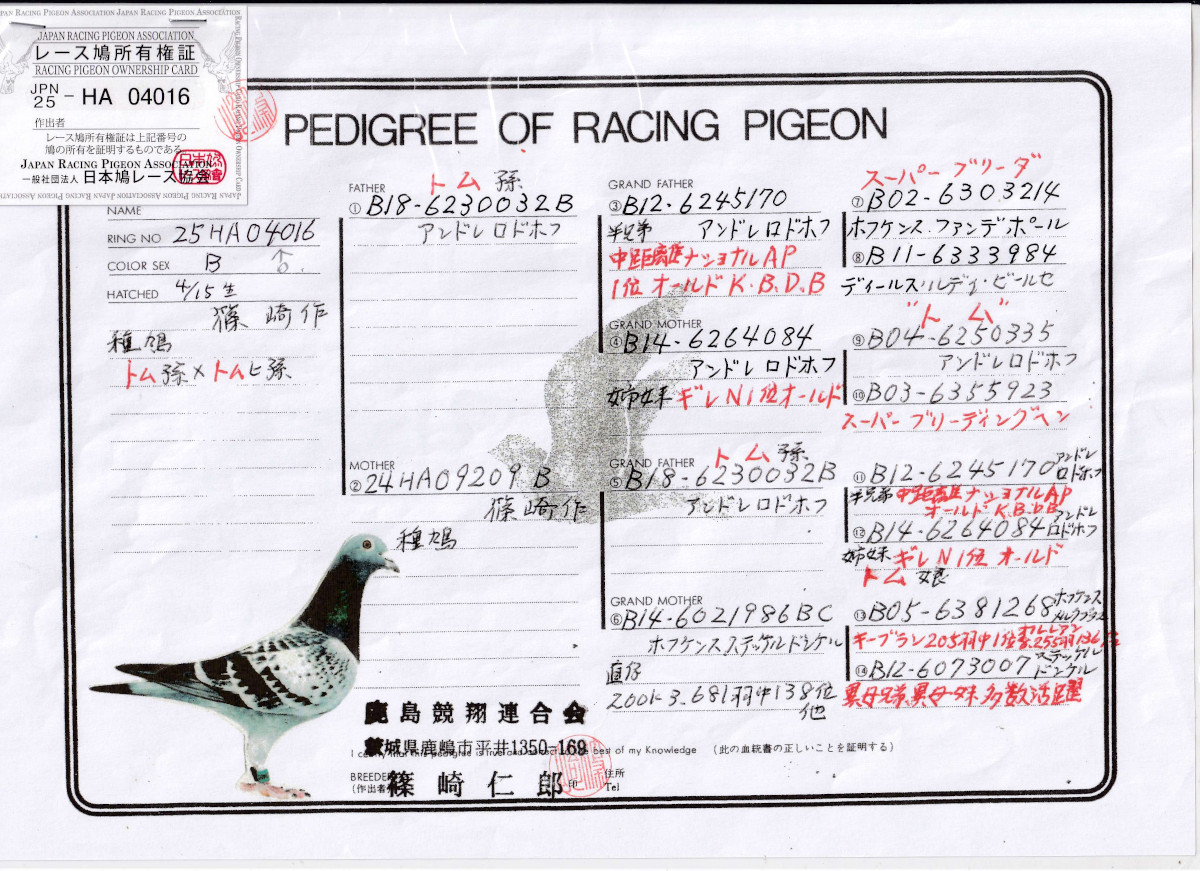 JAPAN RACING PIGEON ASSOCIATION
レース鳩所有権証
RACING PIGEON OWNERSHIP CARD
JPN
25 - HA 04016
作出者
レース鳩所有権証は上記番号の
鳩の所有を証明するものである
JAPAN RACING PIGEON ASSOCIATION
一般社団法人 日本鳩レース協会
PEDIGREE OF RACING PIGEON
NAME
RING NO 25HA04016
COLOR SEX B ♂
HATCHED 4/15生
篠崎作
種鳩
トム孫×トムヒ孫
FATHER トム孫
① B18-6230032B
アンドレロドホフ
MOTHER
② 24HA09209 B
篠崎作
種鳩
GRAND FATHER
③ B12-6245170
半兄弟 アンドレロドホフ
中距離ナショナルAP
1位 オールドK.B.D.B
GRAND MOTHER
④ B14-6264084
アンドレロドホフ
姉妹 ギレN1位オールド
GRAND FATHER トム孫
⑤ B18-6230032B
アンドレロドホフ
GRAND MOTHER
⑥ B14-6021986BC
ホフケンスステッケルドンケル
直仔
200Iに3.681羽中138位
他
スーパーブリーダ
⑦ B02-6303214
ホフケンス.ファンデポール
⑧ B11-6333984
ディールス・ルディ・ビールセ
"トム"
⑨ B04-6250335
アンドレロドホフ
⑩ B03-6355923
スーパーブリーディングヘン
⑪ B12-6245170 アンドレ
ロドホフ
半兄弟 中距離ナショナルAP
オールドK.B.D.B
⑫ B14-6264084 アンドレ
ロドホフ
姉妹 ギレN1位 オールド
トム娘
⑬ B05-6381268 ホフケンス
キーブラン205羽中1位 オルレアン255羽136位
⑭ B12-6073007 ステッケル
ドンケル
異母兄弟、異母姉妹多数活躍
鹿島競翔連合会
茨城県鹿嶋市平井1350-169
I certify that this pedigree is true and correct to the best of my Knowledge (此の血統書の正しいことを証明する)
BREEDER
(作出者) 篠崎仁郎 印
住所
Tel